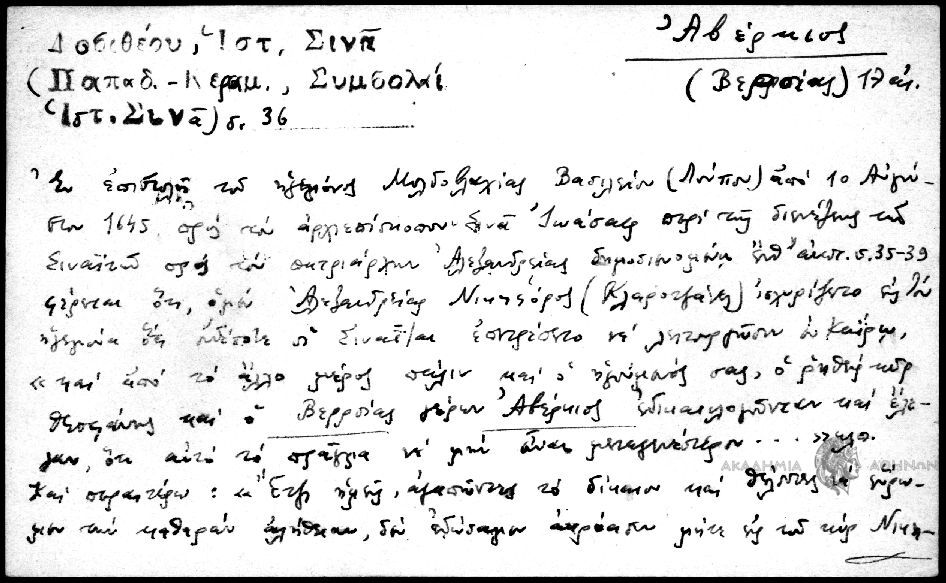 Δοσιθέου, Ἱστ. Σινᾶ
(Παπαδ.-Κεραμ., Συμβολαί
Ἱστ. Σινᾶ) σ. 36
Ἀβέρκιος
(Βερροίας) 17 αἰ.
Ἐν ἐπιστολῇ τοῦ ἡγεμόνος Μολδοβλαχίας Βασιλείου (Λούπου) ἀπό 10 Αὐγού-
στου 1645 πρός τόν ἀρχιεπίσκοπον Σινᾶ Ἰωάσαφ περί τῆς διενέξεως τῶν
Σιναϊτῶν πρός τόν πατριάρχην Ἀλεξανδρείας δημοσιευομένῃ ἔνθ' ἀνωτ. σ. 35-39
φέρεται ὅτι, ὁ μέν Ἀλεξανδρείας Νικηφόρος (Κλαροτζάνης) ἰσχυρίζετο εἰς τόν
ἡγεμόνα ὅτι οὐδέποτε οἱ Σιναΐται ἐπετρέπετο νά λειτουργῶσιν ἐν Καΐρῳ,
«καί ἀπό τό ἄλλο μέρος πάλιν καί ὁ ἡγούμενός σας, ὁ ῥηθείς κύρ
Θεοφάνης καί ὁ Βερροίας γέρων Ἀβέρκιος ἐδικαιολογοῦνταν καί ἔλε-
γαν, ὅτι αὐτό τό πρᾶγμα νά μήν εἶναι μεταγενέστερον . . . . » κλπ.
Καί περαιτέρω : «Ἔτζι ἡμεῖς, ἀγαπῶντες τό δίκαιον καί θέλοντες νά εὕρω-
μεν τήν καθαράν ἀλήθειαν, δέν ἐδώσαμεν ἀκρόασιν μήτε εἰς τοῦ κύρ Νικη-
ΑΚΑΔΗΜΙΑ ΑΘΗΝΩΝ